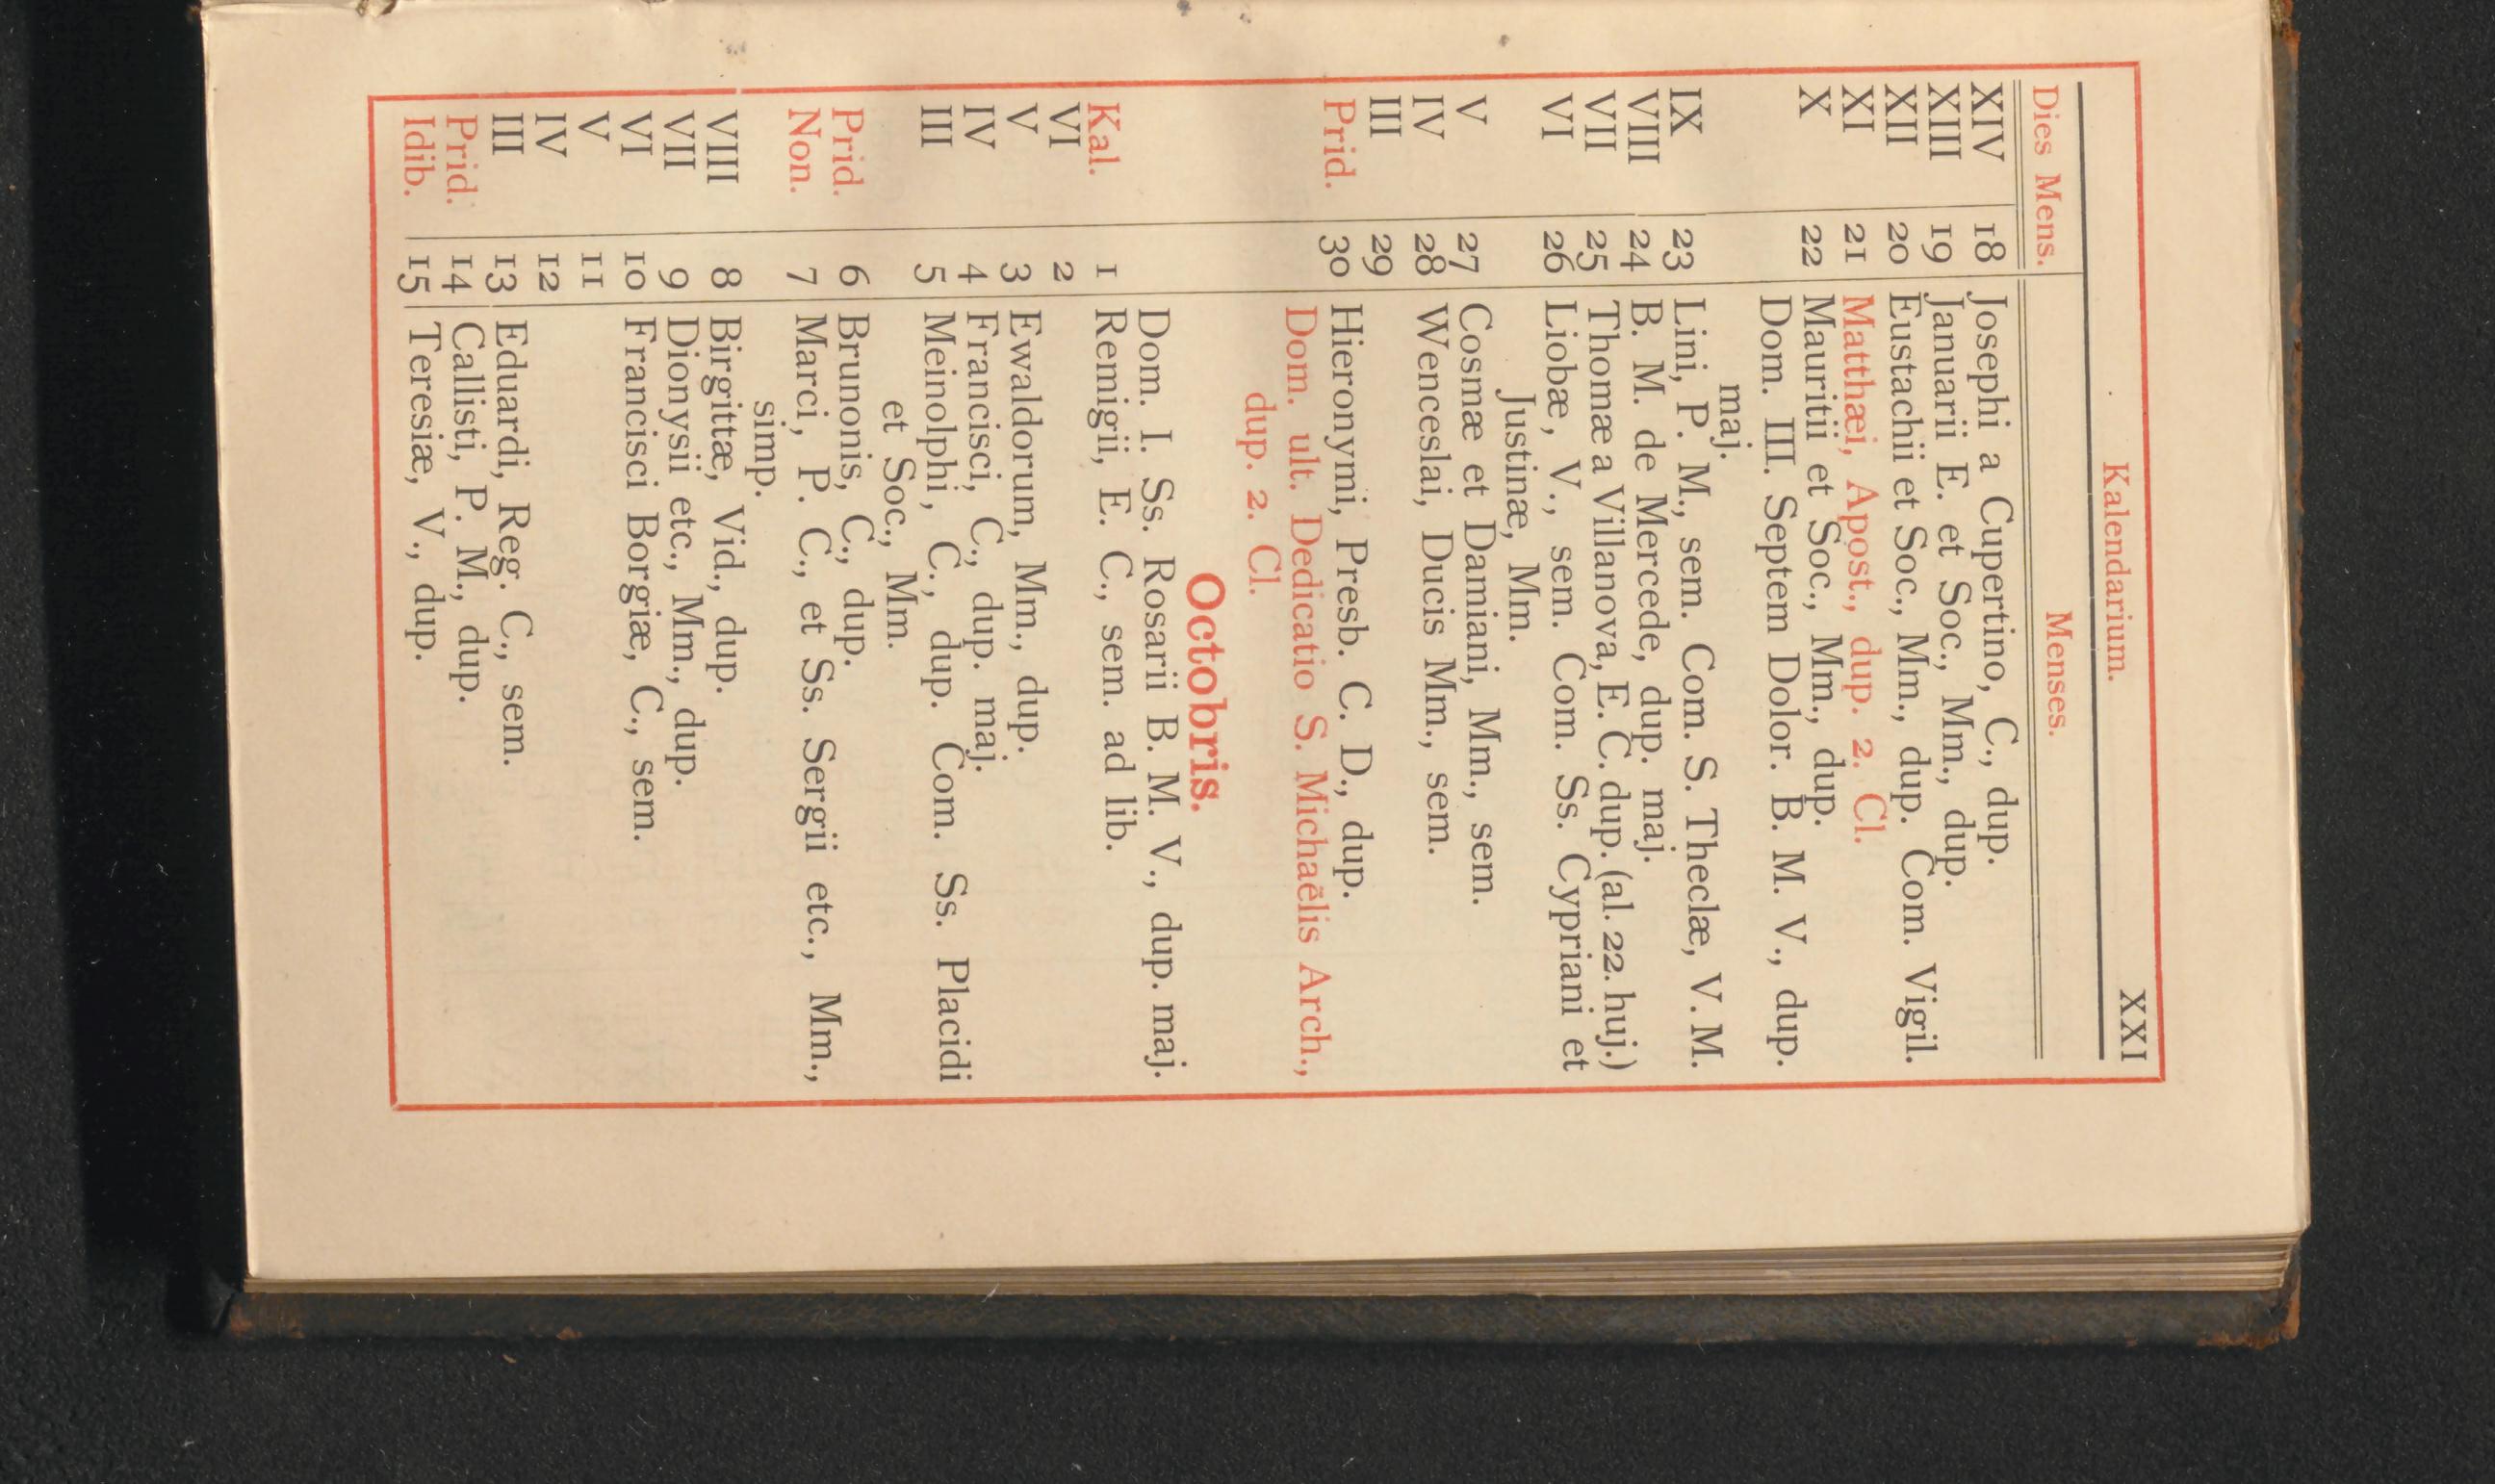 Kalendarium. XXI
Dies Mens. Menses.
XIV 18 Josephi a Cupertino, C., dup.
XIII 19 Januarii E. et Soc., Mm., dup.
XII 20 Eustachii et Soc., Mm., dup. Com. Vigil.
XI 21 Matthæi, Apost., dup. 2. Cl.
X 22 Mauritii et Soc., Mm., dup.
Dom. III. Septem Dolor. B. M. V., dup.
maj.
IX 23 Lini, P. M., sem. Com. S. Theclæ, V. M.
VIII 24 B. M. de Mercede, dup. maj.
VII 25 Thomæ a Villanova, E. C. dup. (al. 22. huj.)
VI 26 Liobæ, V., sem. Com. Ss. Cypriani et
Justinæ, Mm.
V 27 Cosmæ et Damiani, Mm., sem.
IV 28 Wenceslai, Ducis Mm., sem.
III 29
Prid. 30 Hieronymi, Presb. C. D., dup.
Dom. ult. Dedicatio S. Michaëlis Arch.,
dup. 2. Cl.
Octobris.
Dom. I. Ss. Rosarii B. M. V., dup. maj.
Kal. 1 Remigii, E. C., sem. ad lib.
VI 2
V 3 Ewaldorum, Mm., dup.
IV 4 Francisci, C., dup. maj.
III 5 Meinolphi, C., dup. Com. Ss. Placidi
et Soc., Mm.
Prid. 6 Brunonis, C., dup.
Non. 7 Marci, P. C., et Ss. Sergii etc., Mm.,
simp.
VIII 8 Birgittæ, Vid., dup.
VII 9 Dionysii etc., Mm., dup.
VI 10 Francisci Borgiæ, C., sem.
V 11
IV 12
III 13 Eduardi, Reg. C., sem.
Prid. 14 Callisti, P. M., dup.
Idib. 15 Teresiæ, V., dup.